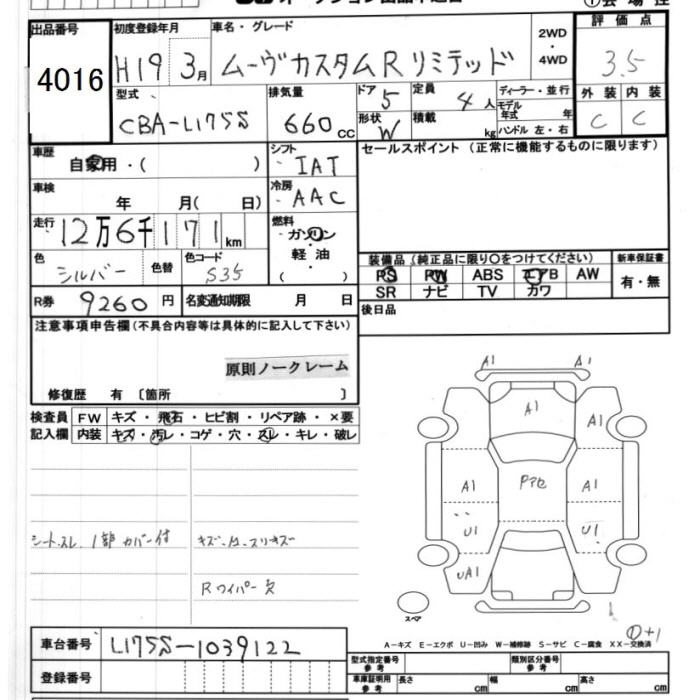 出品番号 4016
初度登録年月 H19 3月
車名・グレード ムーヴカスタムRリミテッド
2WD・4WD
評価点 3.5
外装 内装
C C
型式 CBA-L175S
排気量 660cc
ドア 5
形状 W
定員 4人
積載 kg
ディーラー・並行
モデル年式 年
ハンドル 左・右
車歴 自家用・( )
シフト IAT
セールスポイント (正常に機能するものに限ります)
車検 年 月( 日)
冷房 AAC
走行 12万6千171km
燃料 ガソリン 軽油 ( )
色 シルバー 色替
色コード S35
装備品 (純正品に限り○をつけてください)
新車保証書
PS PW ABS エアB AW
有・無
SR ナビ TV カワ
R券 9260円 名変通知期限 月 日
後日品
注意事項申告欄(不具合内容等は具体的に記入して下さい)
原則ノークレーム
修復歴 有 〔箇所 〕
検査員記入欄
FW キズ・飛石・ヒビ割・リペア跡・×要
内装 キズ・汚レ・コゲ・穴・スレ・キレ・破レ
シートスレ 1部カバー付
キズ・凹・スリキズ
Rワイパー欠
A1 A1
A1
A1
A1 Pアセ A1
U1 U1
UA1
スペア
①+1
A-キズ E-エクボ U-凹み W-補修跡 S-サビ C-腐食 XX-交換済
車台番号 L175S-1039122
登録番号
型式指定番号 参考
類別区分番号 参考
車庫証明用 参考 長さ cm 幅 cm 高さ cm